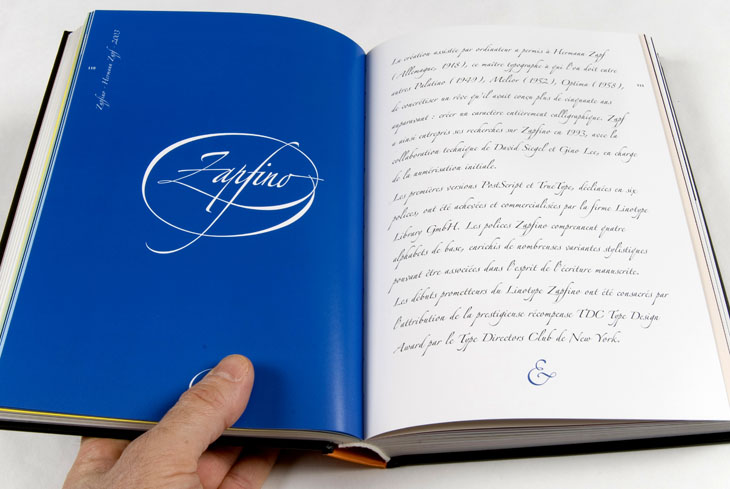 Zapfino · Hermann Zapf 2003
118
Zapfino
La création assistée par ordinateur a permis à Hermann Zapf
(Allemagne, 1918), ce maître typographe à qui l'on doit entre
autres Palatino (1949), Melior (1952), Optima (1958),
de concrétiser un rêve qu'il avait conçu plus de cinquante ans
auparavant : créer un caractère entièrement calligraphique. Zapf
a ainsi entrepris ses recherches sur Zapfino en 1993, avec la
collaboration technique de David Siegel et Gino Lee, en charge
de la numérisation initiale.
Les premières versions PostScript et TrueType, déclinées en six
polices, ont été achevées et commercialisées par la firme Linotype
Library GmbH. Les polices Zapfino comprennent quatre
alphabets de base, enrichis de nombreuses variantes stylistiques
pouvant être associées dans l'esprit de l'écriture manuscrite.
Les débuts prometteurs du Linotype Zapfino ont été consacrés par
l'attribution de la prestigieuse récompense TDC Type Design
Award par le Type Directors Club de New York.
&